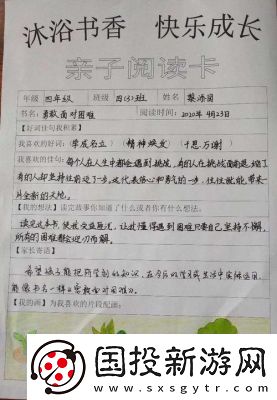 沐浴书香 快乐成长
亲子阅读卡
年级 四年级 班级 四(3)班 姓名
书名：勇敢面对困难 阅读时间：2020年4月23日
【好词佳句我积累】
我喜欢的好词：(学成名立) (精神焕发) (千恩万谢)
我喜欢的佳句：每个人在人生中都会遇到挑战，有的人在挑战面前是
有的人却坚持往前迈了一步。这代表信心和勇气的一步，往往就能带来
片全新的天地。
【我的想法】读完故事你知道了什么或者你有什么想法。
读完这本书，使我受益匪浅，让我懂得遇到困难只要自己坚持不懈，
所有的困难都会迎刃而解。
【家长寄语】
希望孩子能把所学到的知识，在今后的学习或生活中实际运用，
能像书名一样《勇敢面对困难》。
【我的画】为我喜欢的片段配画：
国投新游网
www.sxsgytr.com